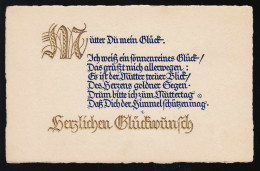 Mütter Du mein Glück.
Ich weiß ein sonnenreines Glück/
Das grüßt mich allerwegen:
Es ist der Mütter treüer Blick/
Des Herzens goldner Segen.
Drüm bitte ich züm Müttertag
Daß Dich der Himmel schützen mag.
Herzlichen Glückwünsch